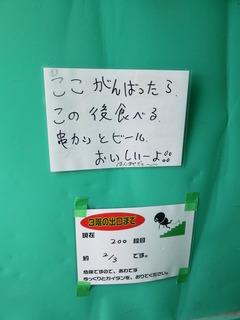 ここ がんばったら、
この後食べる
串カツとビール
おいしいーよ!!
3階の出口まで
現在
200 段目
約 2/3 です。
危険ですので、あわてず
ゆっくりとカイダンを、おりてください。